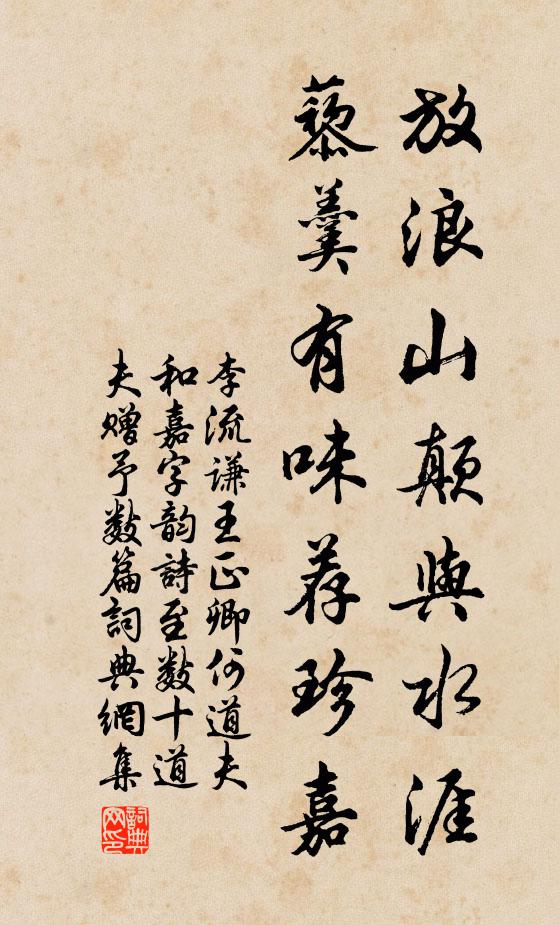 放浪山顛與水涯
藜羹有味荐珍嘉
李流謙王正卿何道夫
和嘉字韵詩至数十道
夫贈予数篇詞典網集
詞典网印